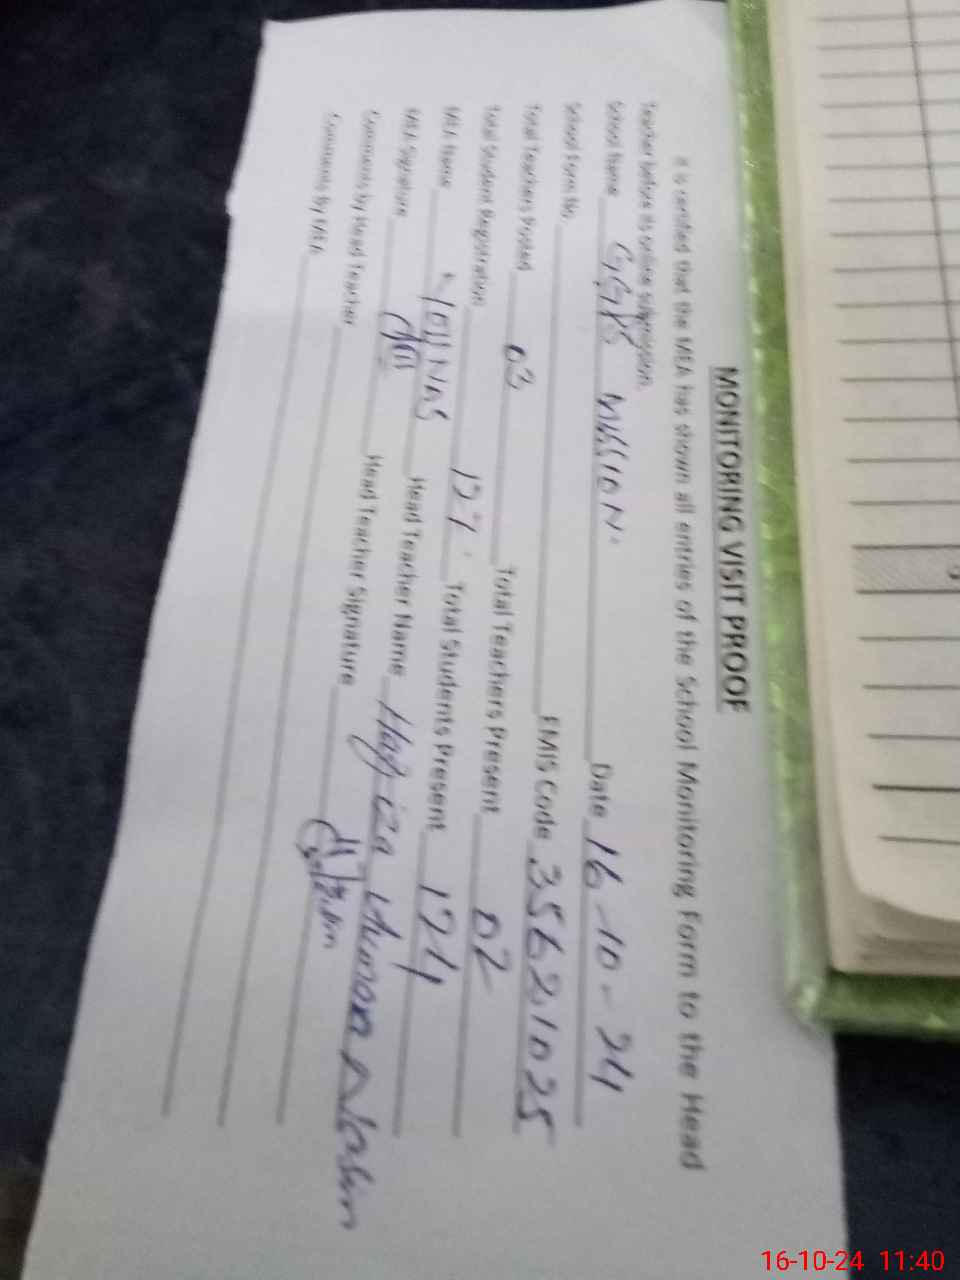 MONITORING VISIT PROOF
It is certified that the MEA has shown all entries of the School Monitoring Form to the Head
Teacher before its online submission.
School Name GGPS MISSION. Date 16-10-24
School Form No. EMIS Code 35621025
Total Teachers Posted 03 Total Teachers Present 02
Total Student Registration Total Students Present 124
MEA Name YOUNAS Head Teacher Name Hafiza
MEA Signature Head Teacher Signature
Comments by Head Teacher
Comments by MEA
16-10-24 11:40